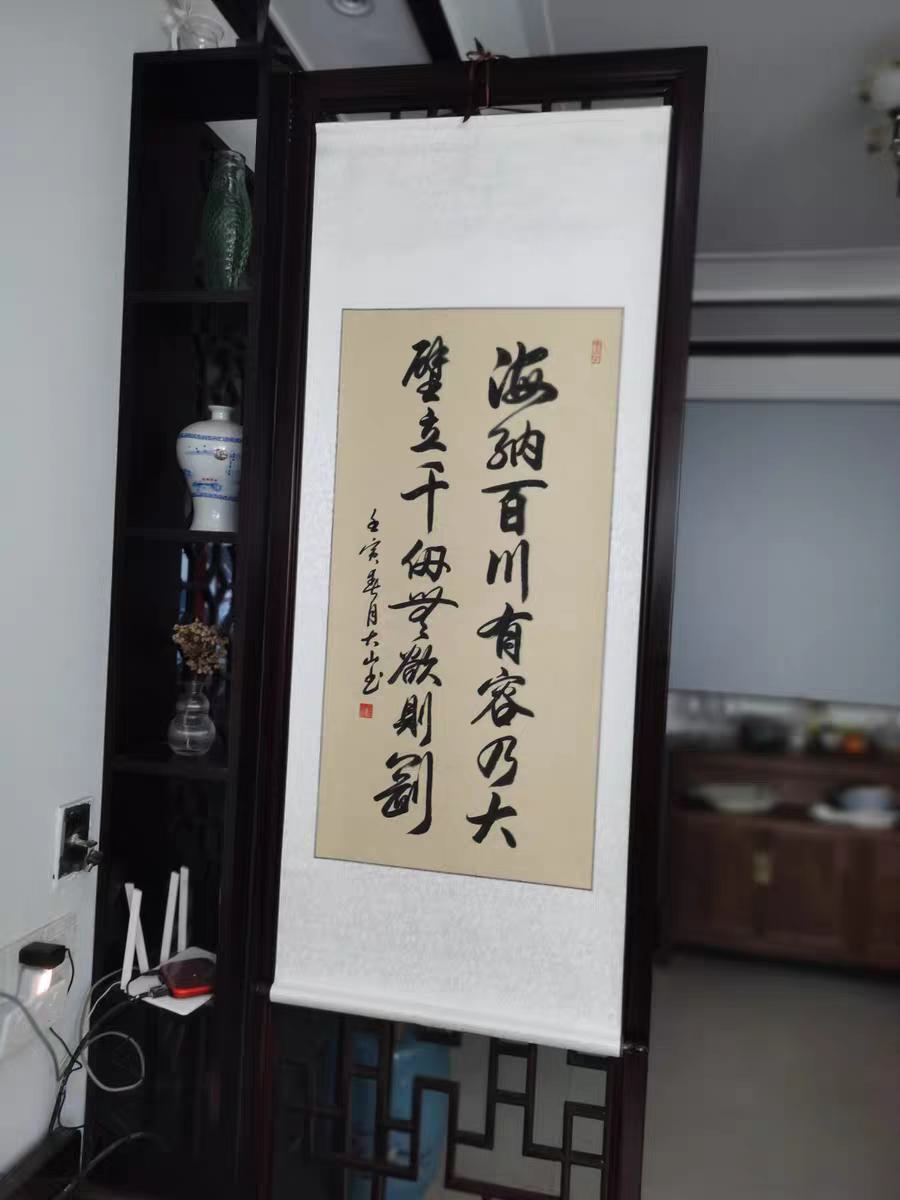 海納百川有容乃大
壁立千仞無欲則剛
壬寅春月大山书